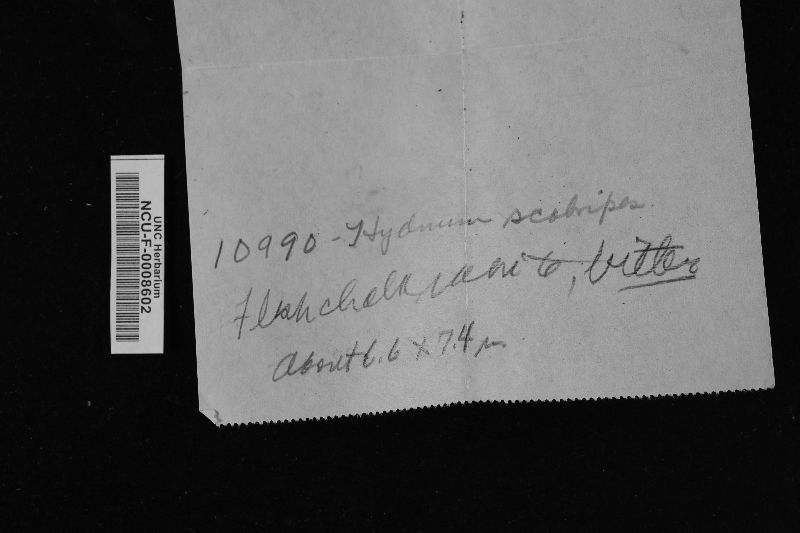 UNC Herbarium
NCU-F-0008602
10990 - Hydnum scabripes
Flesh chalk white, bitter
About 6.6 X 7.4 µ